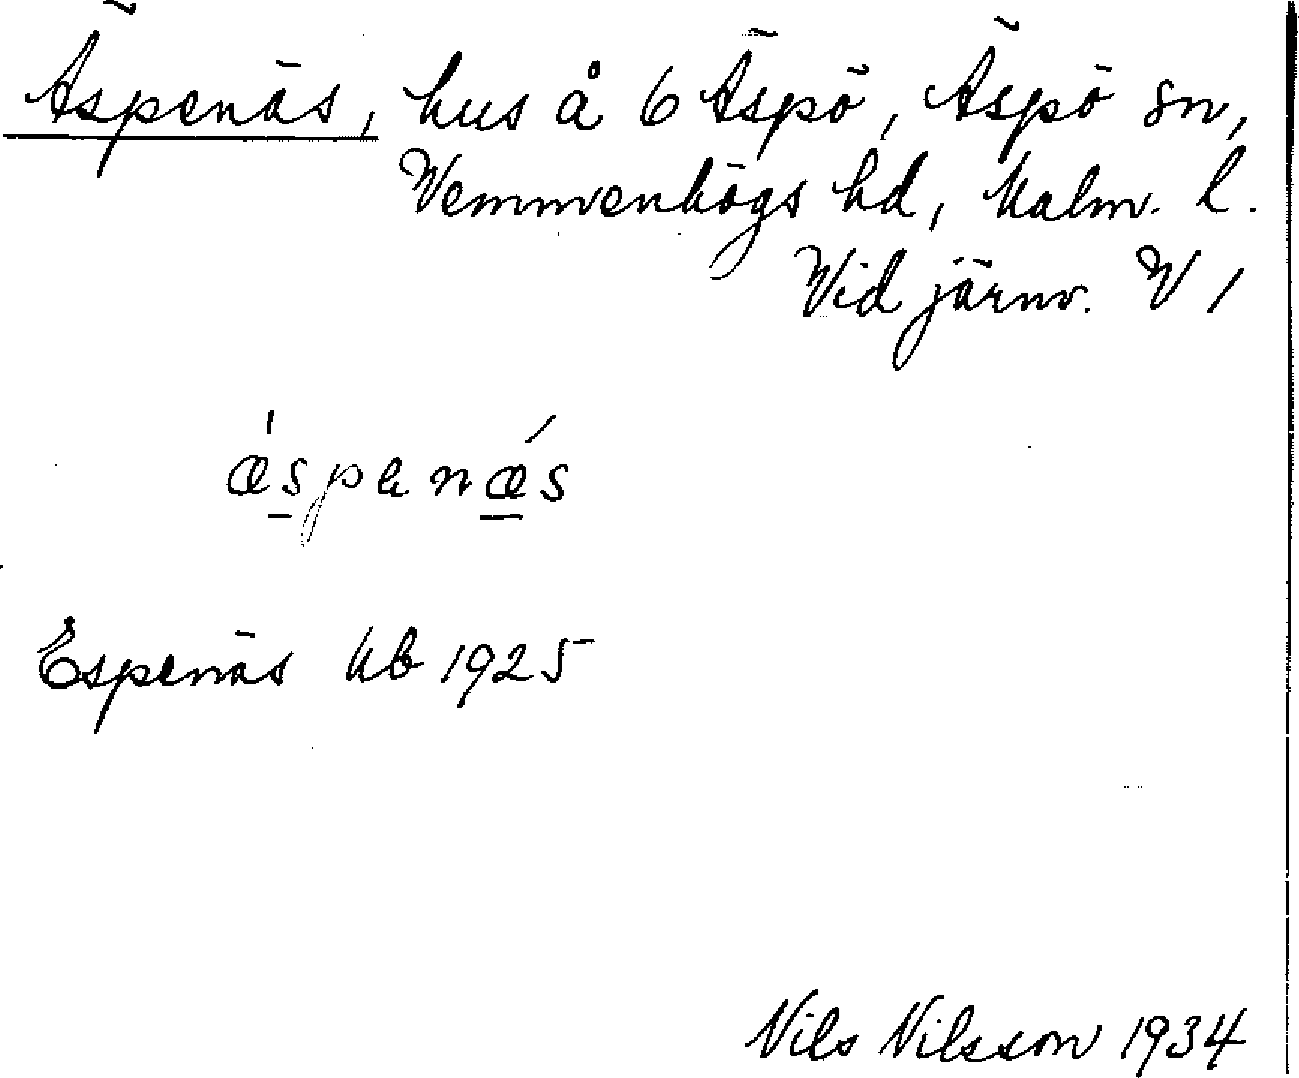 Äspenäs, hus å 6 Äspö, Äspö sn,
Vemmenhögs hd, Malm. l.
Vid järnv. V 1
æ̍spanǽs
Espenäs kb 1925
Nils Nilsson 1934